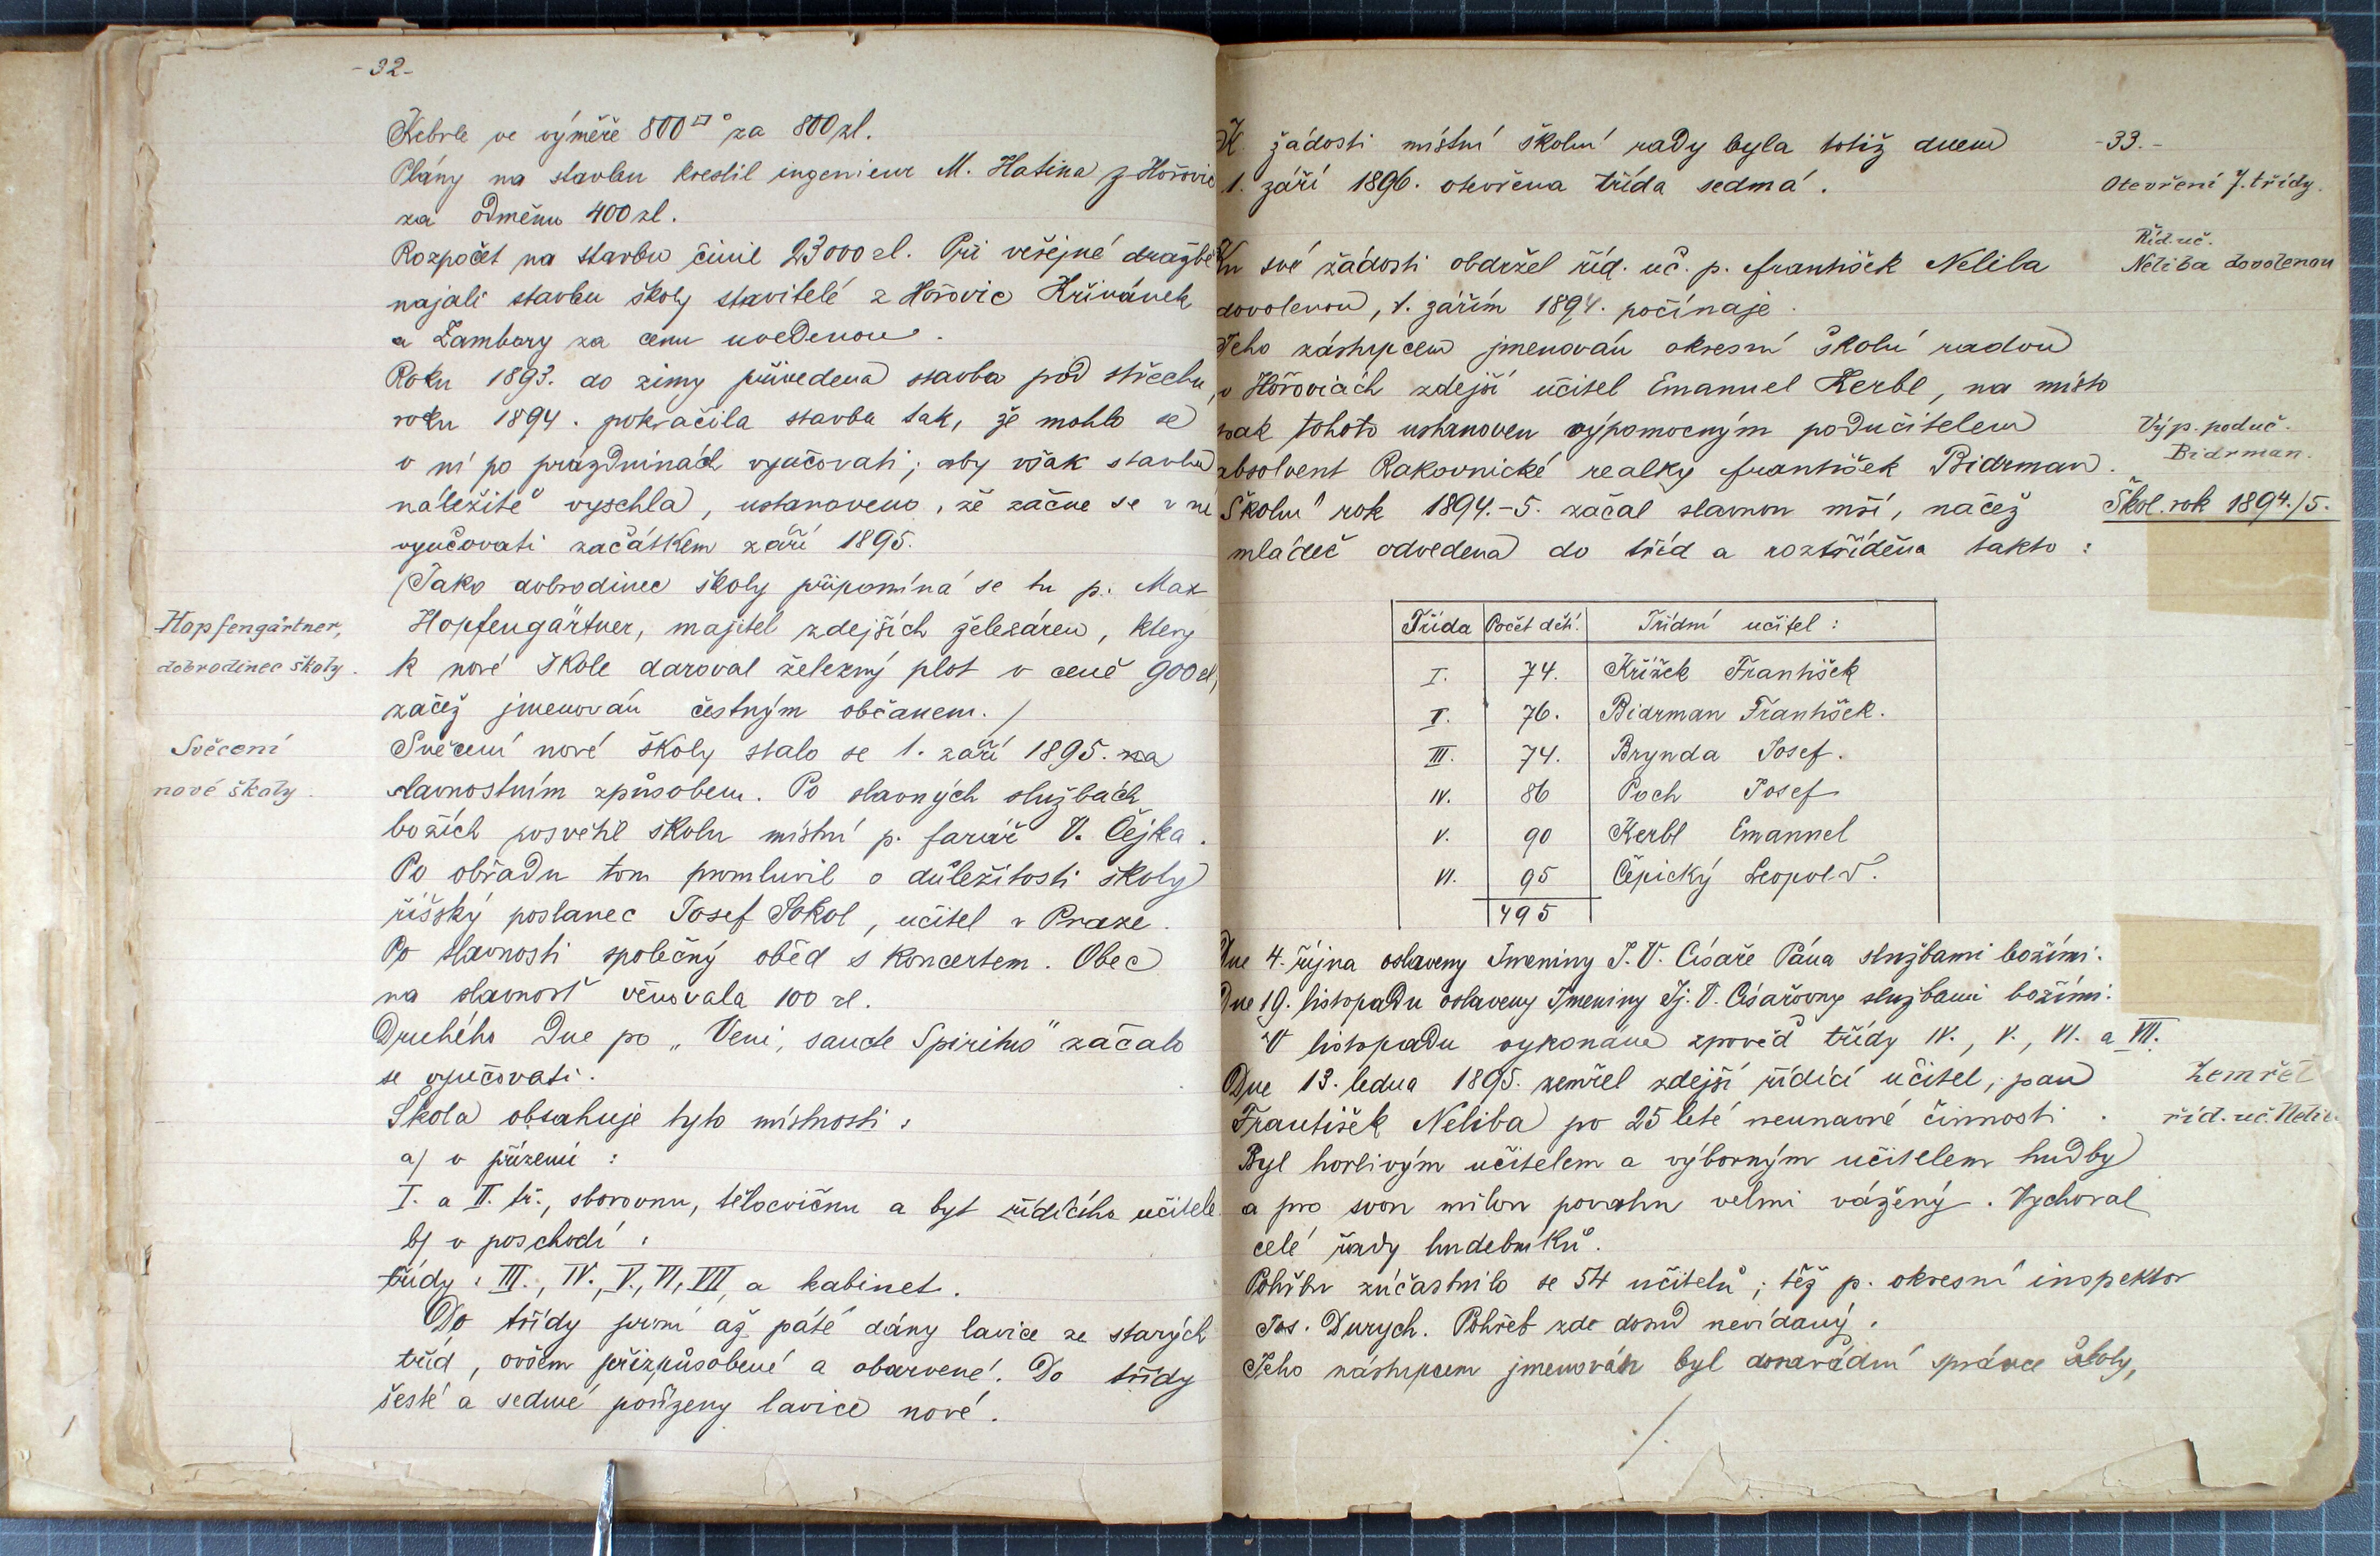 -32-
Kebrle ve výměře 800□° za 800 zl.
Plány na stavbu kreslil ingenieur M. Hatina z Hořovic
za odměnu 400 zl.
Rozpočet na stavbu činil 23000 zl. Při veřejné dražbě
najali stavbu školy stavitelé z Hořovic Křivánek
a Zambory za cenu uvedenou.
Roku 1893. do zimy přivedena stavba pod střechu,
roku 1894. pokračila stavba tak, že mohlo se
v ní po prázdninách vyučovati; aby však stavba
náležitě vyschla, ustanoveno, že začne se v ní
vyučovati začátkem září 1895.
/Jako dobrodinec školy připomíná se tu p. Max
Hopfengärtner,
dobrodinec školy.
Hopfengärtner, majitel zdejších železáren, který
k nové škole daroval železný plot v ceně 900 zl,
začež jmenován čestným občanem./
Svěcení
nové školy.
Svěcení nové školy stalo se 1. září 1895. na
slavnostním způsobem. Po slavných službách
božích posvětil školu místní p. farář V. Čejka.
Po obřadu tom promluvil o důležitosti školy
říšský poslanec Josef Sokol, učitel v Praze.
Po slavnosti společný oběd s koncertem. Obec
na slavnosť věnovala 100 zl.
Druhého dne po „Veni, sancte Spiritus" začalo
se vyučovati.
Škola obsahuje tyto místnosti:
a/ v přízemí:
I. a II. tř., sborovnu, tělocvičnu a byt řídícího učitele
b/ v poschodí:
třídy: III., IV., V., VI, VII, a kabinet.
Do třídy první až páté dány lavice ze starých
tříd, ovšem přizpůsobené a obarvené. Do třídy
šesté a sedmé pořízeny lavice nové.
-33.-
K žádosti místní školní rady byla totiž dnem
1. září 1896. otevřena třída sedmá.
Otevření 7. třídy.
Říd. uč.
Neliba dovolenou
Ku své žádosti obdržel říd. uč. p. František Neliba
dovolenou, 1. zářím 1894. počínaje.
Jeho zástupcem jmenován okresní školní radou
v Hořovicích zdejší učitel Emanuel Kerbl, na místo
pak tohoto ustanoven výpomocným podučitelem
absolvent Rakovnické realky František Bidrman.
Výp. poduč.
Bidrman.
Školní rok 1894.-5. začal slavnou mší, načež
Škol. rok 1894./5.
mládež odvedena do tříd a roztříděna takto:
Třída Počet dětí. Třídní učitel:
I. 74. Křížek František
II. 76. Bidrman František.
III. 74. Brynda Josef.
IV. 86 Poch Josef
V. 90 Kerbl Emanuel
VI. 95 Čépický Leopold.
495
Dne 4. října oslaveny Jmeniny J. V. Císaře Pána službami božími.
Dne 19. listopadu oslaveny Jmeniny Jj. V. Císařovny službami božími.
V listopadu vykonána zpověď třídy IV., V., VI. a VII.
Dne 13. ledna 1895. zemřel zdejší řídící učitel, pan
František Neliba po 25 leté neunavné činnosti.
Zemřel
říd. uč. Nelib
Byl horlivým učitelem a výborným učitelem hudby
a pro svou milou povahu velmi vážený. Vychoval
celé řady hudebníků.
Pohřbu zúčastnilo se 54 učitelů; též p. okresní inspektor
Jos. Durych. Pohřeb zde dosud nevídaný.
Jeho nástupcem jmenován byl dosavádní správce školy,
./.